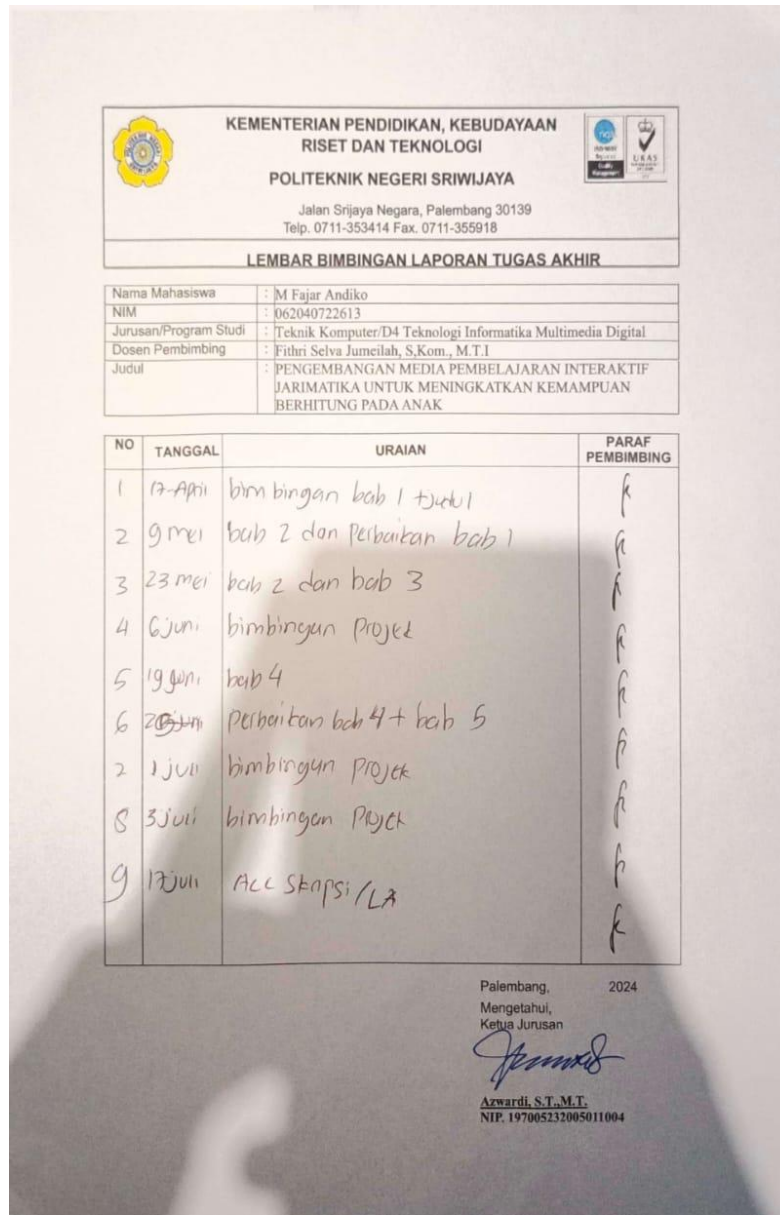 KEMENTERIAN PENDIDIKAN, KEBUDAYAAN
RISET DAN TEKNOLOGI
POLITEKNIK NEGERI SRIWIJAYA
Jalan Srijaya Negara, Palembang 30139
Telp. 0711-353414 Fax. 0711-355918
UKAS
LEMBAR BIMBINGAN LAPORAN TUGAS AKHIR
Nama Mahasiswa : M Fajar Andiko
NIM : 062040722613
Jurusan/Program Studi : Teknik Komputer/D4 Teknologi Informatika Multimedia Digital
Dosen Pembimbing : Fithri Selva Jumeilah, S,Kom., M.T.I
Judul : PENGEMBANGAN MEDIA PEMBELAJARAN INTERAKTIF
JARIMATIKA UNTUK MENINGKATKAN KEMAMPUAN
BERHITUNG PADA ANAK
NO TANGGAL URAIAN PARAF
PEMBIMBING
1 17-April bimbingan bab 1 + judul
2 9 mei bab 2 dan Perbaikan bab 1
3 23 mei bab 2 dan bab 3
4 6 juni bimbingan Projek
5 19 juni bab 4
6 juni perbaikan bab 4 + bab 5
2 1 juli bimbingan Projek
8 3 juli bimbingan Projek
9 17 juli Acc Skripsi/LA
Palembang, 2024
Mengetahui,
Ketua Jurusan
Azwardi, S.T.,M.T.
NIP. 197005232005011004